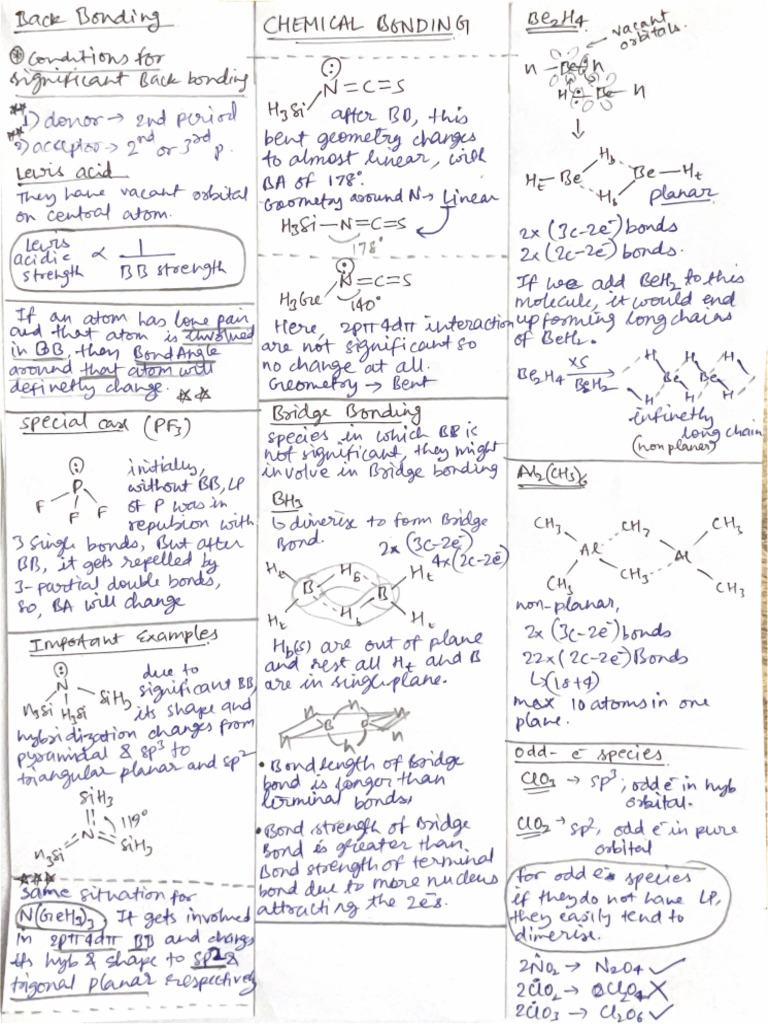 Back Bonding
* Conditions for
significant Back bonding
** 1) donor → 2nd period
** 2) acceptor → 2nd or 3rd p.
Lewis acid
They have vacant orbital
on central atom.
Lewis acidic strength ∝ 1 / BB strength
If an atom has lone pair
and that atom is involved
in BB, then Bond Angle
around that atom will
definetly change. **
special case (PF3)
P
F F F
initially,
without BB, LP
of P was in
repulsion with
3 single bonds, But after
BB, it gets repelled by
3-partial double bonds,
so, BA will change
Important Examples
N
H3Si H3Si SiH3
due to
significant BB,
its shape and
hybridization changes from
pyramidal & sp3 to
triangular planar and sp2
SiH3
N 119°
H3Si SiH3
***
Same situation for
N(GeH3)3 It gets involved
in 2pπ4dπ BB and changes
its hyb & shape to sp2 &
trigonal planar respectively
CHEMICAL BONDING
N=C=S
H3Si
after BB, this
bent geometry changes
to almost linear, with
BA of 178°.
Geometry around N → Linear
H3Si—N=C=S
178°
N=C=S
H3Ge 140°
Here, 2pπ4dπ interaction
are not significant so
no change at all.
Geometry → Bent
Bridge Bonding
species in which BB is
not significant, they might
involve in Bridge bonding
BH3
↳ dimerise to form Bridge
Bond.
2x (3c-2e-)
4x (2c-2e)
Ht Hb Ht
B B
Ht Hb Ht
Hb(s) are out of plane
and rest all Ht and B
are in single plane.
H H H
B B
H H H
• Bond length of Bridge
bond is longer than
terminal bonds,
• Bond strength of Bridge
Bond is greater than
Bond strength of terminal
bond due to more nucleus
attracting the 2e's.
Be2H4
vacant
orbitals.
H—Be H
H Be—H
↓
Hb
Ht—Be Be—Ht
Hb
planar
2x (3c-2e-) bonds
2x (2c-2e-) bonds.
If we add BeH2 to this
molecule, it would end
up forming long chains
of BeH2.
Be2H4 XS BeH2 →
H H H
Be Be
H H H
infinetly
long chain
(non planer)
Al2(CH3)6
CH3 CH3 CH3
Al Al
CH3 CH3 CH3
non-planar,
2x (3c-2e-) bonds
22x (2c-2e-) Bonds
↳(18+4)
max 10 atoms in one
plane.
Odd- e- species
ClO3 → sp3; odd e- in hyb
orbital.
ClO2 → sp2, odd e- in pure
orbital
for odd e- species
if they do not have LP,
they easily tend to
dimerise.
2NO2 → N2O4 ✓
2ClO2 → Cl2O4 X
2ClO3 → Cl2O6 ✓